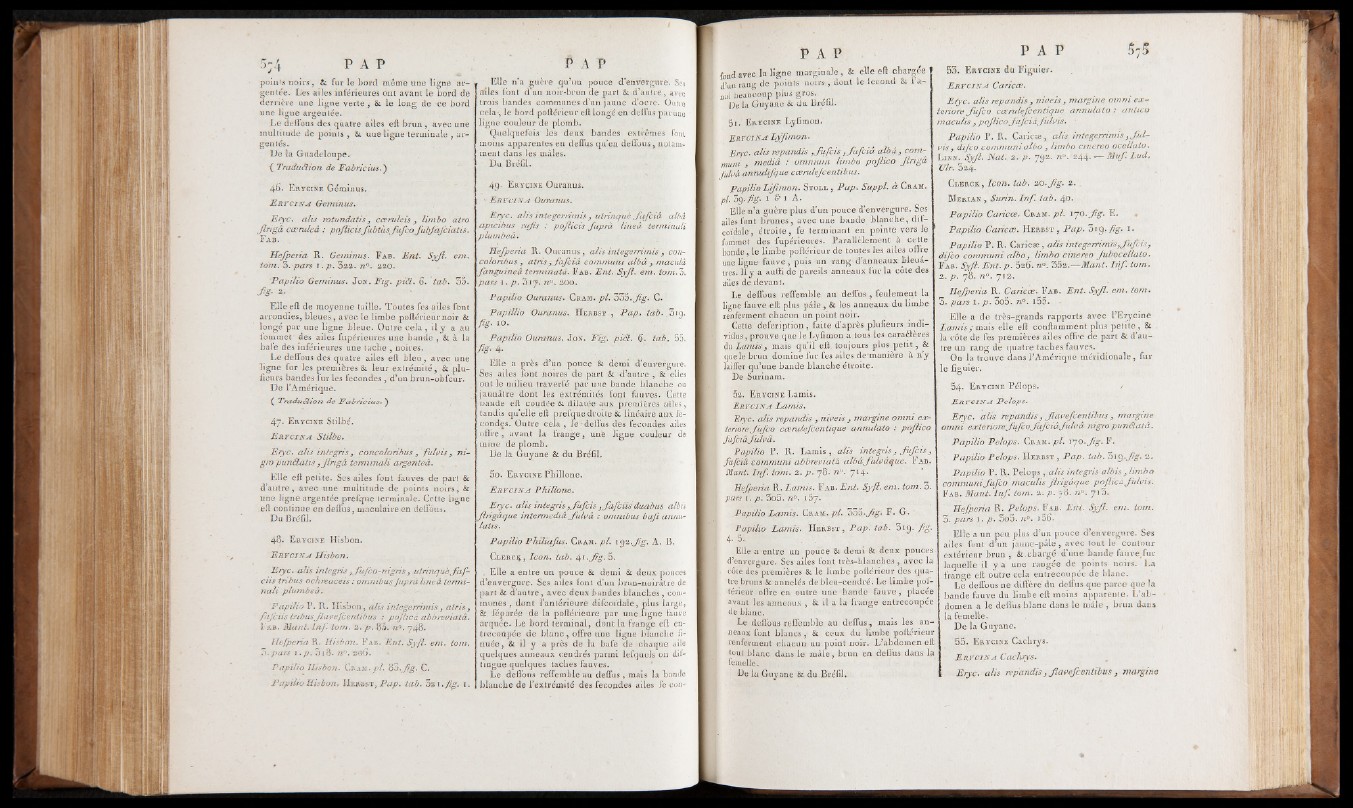 574 P A P
points noirs, & sur le bord même une ligne ar-
gentée. Les ailes inférieures ont avant le bord de
derrière une ligne verte, & le long de ce bord
une ligne argentée.
Le dessous des quatre ailes est brun, avec une
multitude de points, & une ligne terminale, ar-
gentés.
De la Guadeloupe.
( Traduction de Fabricius. )
46. ERYCINE Géminus.
ERYCINA Geminus.
Eryc. alis rotundatis, cœruleis, limbo atro
strigâ cœruleâ : posticis subtùs fusco subfasciatis.
FAB.
Hesperia R. Geminus. FAB. Ent. Syst. em.
tom. 3. pars 1. p. 322. n°. 220.
Papilio Geminus. JON. Fig. pict. 6. tab. 33.
fig. 2.
Elle est de moyenne taille. Toutes ses ailes sont
arrondies, bleues, avec le limbe postérieur noir &
longé par une ligne bleue. Outre cela, il y a au
sommet des ailes supérieures une bande, & à la
base des inférieures une tache, noires.
Le dessous des quatre ailes est bleu, avec une
ligne sur les premières & leur extrémité, & plu-
sieurs bandes sur les secondes, d'un brun-obscur.
De l'Amérique.
( Traduction de Fabricius. )
47. ERYCINE Stilbé.
ERYCINA Stilbe.
Eryc. alis integris, concoloribus, fulvis, ni-
gro punctatis, strigâ terminali argenteâ.
Elle est petite. Ses ailes sont fauves de part &
d'autre, avec une multitude de points noirs, &
une ligne argentée presque terminale. Cette ligne
est continue en dessus, maculaire en dessous.
Du Brésil.
48. ERYCINE Hisbon.
ERYCINA Hisbon.
Eryc. alis integris, fusco-nigris, utrinquè fas-
ciis tribus ochraceis : omnibus suprà lineâ termi-
nali plumbeâ.
Papilio P. R. Hisbon, alis integerrimis, atris,
fasciis tribus flavescentibus : posticâ abbreviatâ.
FAB. Mant. Inf. tom. 2. p. 82. n°. 748.
Hesperia R. Hisbon. FAB. Ent. Syst. em. tom.
3. pars 1. p. 318. n°.
Papilio Hisbon. CRAM. pl. 83. fig. C.
Papilio Hisbon. HERBST, Pap. tab. 321. fig. 1.
P A P
Elle n'a guère qu'un pouce d'envergure. Ses
ailes sont d'un noir-brun de part & d'autre, avec
trois bandes communes d'un jaune d'ocre. Outre
cela, le bord postérieur est longé en dessus par une
ligne couleur de plomb.
Quelquefois les deux bandes extrêmes sont
moins apparentes en dessus qu'en dessous, notam-
ment dans les mâles.
Du Brésil.
49. ERYCINE Ouranus.
ERYCINA Ouranus.
Eryc. alis integerrimis, utrinquè fasciâ albâ
apicibus rufis : posticis suprà lineâ terminali
plumbeâ.
Hesperia R. Ouranus, alis integerrimis, con-
coloribus, atris, fasciâ communi albâ, maculâ
sanguineâ terminatâ. FAB. Ent. Syst. em. tom. 3.
pars 1. p. 317. n°. 200.
Papilio Ouranus. CRAM. pl. 335. fig. C.
Papilio Ouranus. HERBST, Pap. tab. 319.
fig. 10.
Papilio Ouranus. JON. Fig. pict. 6. tab. 55.
fig. 4.
Elle a près d'un pouce & demi d'envergure.
Ses ailes sont noires de part & d'autre, & elles
ont le milieu traversé par une bande blanche ou
jaunâtre dont les extrémités sont fauves. Cette
bande est coudée & dilatée aux premières ailes,
tandis qu'elle est presque droite & linéaire aux se-
condes. Outre cela, le dessus des secondes ailes
offre, avant la frange, une ligne couleur de
mine de plomb.
De la Guyane & du Brésil.
50. ERYCINE Phillone.
ERYCINA Phillone.
Eryc. alis integris, fuscis, fasciis duabus albis
strigâque intermediâ fulvâ : omnibus basi annu-
latis.
Papilio Philiasus. CRAM. pl. 192. fig. A. B.
CLERCK, Icon. tab. 41. fig. 3.
Elle a entre un pouce & demi & deux pouces
d'envergure. Ses ailes sont d'un brun-noirâtre de
part & d'autre, avec deux bandes blanches, com-
munes, dont l'antérieure discoïdale, plus large,
& séparée de la postérieure par une ligne fauve
arquée. Le bord terminal, dont la frange est en-
trecoupée de blanc, offre une ligne blanche si-
nuée, & il y a près de la base de chaque aile
quelques anneaux cendrés parmi lesquels on dis-
tingue quelques taches fauves.
Le dessous ressemble au dessus, mais la bande
blanche de l'extrémité des secondes ailes se con-
P A P
fond avec la ligne marginale, & elle est chargée
d'un rang de points noirs, dont le second & l'a-
nal beaucoup plus gros.
De la Guyane & du Brésil.
51. ERYCINE Lysimon.
ERYCINA Lysimon.
Eryc. alis repandis, fuscis, fasciâ albâ, com-
muni, mediâ : omnium limbo postico strigâ
fulvâ annulisque cœrulescentibus.
Papilio Lisimon. STOLL, Pap. Suppl. à CRAM.
pl. 39. fig. 1 & 1 A.
Elle n'a guère plus d'un pouce d'envergure. Ses
ailes sont brunes, avec une bande blanche, dis-
coïdale, étroite, se terminant en pointe vers le
sommet des supérieures. Parallèlement à cette
bande, le limbe postérieur de toutes les ailes offre
une ligne fauve, puis un rang d'anneaux bleuâ-
tres. Il y a aussi de pareils anneaux sur la côte des
ailes de devant.
Le dessous ressemble au dessus, seulement la
ligne fauve est plus pâle, & les anneaux du limbe
renferment chacun un point noir.
Cette description, faite d'après plusieurs indi-
vidus, prouve que le Lysimon a tous les caractères
du Lamis, mais qu'il est toujours plus petit, &
que le brun domine sur ses ailes de manière à n'y
laisser qu'une bande blanche étroite.
De Surinam.
52. ERYCINE Lamis.
ERYCINA Lamis.
Eryc. alis repandis, niveis, margine omni ex-
teriore fusco cœrulescentique annulato : postico
fasciâ fulvâ.
Papilio P. R. Lamis, alis integris, fuscis,
fasciâ communi abbreviatâ albâ fulvâque. FAB.
Mant. Inf. tom. 2. p. 78. n°. 714.
Hesperia R. Lamis. FAB. Ent. Syst. em. tom. 3.
pars 1. p. 305. n°. 157.
Papilio Lamis. CRAM. pl. 335. fig. F. G.
Papilio Lamis. HERBST, Pap. tab. 319. fig.
4. 5.
Elle a entre un pouce & demi & deux pouces
d'envergure. Ses ailes sont très-blanches, avec la
côte des premières & le limbe postérieur des qua-
tre bruns & annelés de bleu-cendré. Le limbe pos-
térieur offre en outre une bande fauve, placée
avant les anneaux, & il a la frange entrecoupée
de blanc.
Le dessous ressemble au dessus, mais les an-
neaux sont blancs, & ceux du limbe postérieur
renferment chacun un point noir. L'abdomen est
tout blanc dans le mâle, brun en dessus dans la
femelle.
De la Guyane & du Brésil.
P A P 575
53. ERYCINE du Figuier.
ERYCINA Caricæ.
Eryc. alis repandis, niveis, margine omni ex-
teriore fusco cœrulescentique annulato : antico
maculis, postico fasciâ fulvis.
Papilio P. R. Caricæ, alis integerrimis, ful-
vis, disco communi albo, limbo cinereo ocellato.
LINN. Syst. Nat. 2. p. 792. n°. 244. — Mus. Lud.
Ulr. 324.
CLERCK, Icon. tab. 20. fig. 2.
MERIAN, Surin. Inf. tab. 40.
Papilio Caricæ. CRAM. pl. 170. fig. E.
Papilio Caricæ. HERBST, Pap. 319. fig. 1.
Papilio P. R. Caricæ, alis integerrimis, fuscis,
disco communi albo, limbo cinereo subocellato.
FAB. Syst. Ent. p. 526. n°. 352. — Mant. Inf. tom.
2. p. 78. n°. 712.
Hesperia R. Caricæ. FAB. Ent. Syst. em. tom.
3. pars 1. p. 305. n°. 155.
Elle a de très-grands rapports avec l'Erycine
Lamis; mais elle est constamment plus petite, &
la côte de ses premières ailes offre de part & d'au-
tre un rang de quatre taches fauves.
On la trouve dans l'Amérique méridionale, sur
le figuier.
54. ERYCINE Pélops.
ERYCINA Pelops.
Eryc. alis repandis, flavescentibus, margine
omni exteriore fusco, fasciâ fulvâ nigro punctatâ.
Papilio Pelops. CRAM. pl. 170. fig. F.
Papilio Pelops. HERBST, Pap. tab. 319. fig. 2.
Papilio P. R. Pelops, alis integris albis, limbo
communi fusco maculis strigâque posticâ fulvis.
FAB. Mant. Inf. tom. 2. p. 78. n°. 713.
Hesperia R. Pelops. FAB. Ent. Syst. em. tom.
3. pars 1. p. 305. n°. 156.
Elle a un peu plus d'un pouce d'envergure. Ses
ailes sont d'un jaune-pâle, avec tout le contour
extérieur brun, & chargé d'une bande fauve sur
laquelle il y a une rangée de points noirs. La
frange est outre cela entrecoupée de blanc.
Le dessous ne diffère du dessus que parce que la
bande fauve du limbe est moins apparente. L'ab-
domen a le dessus blanc dans le mâle, brun dans
la femelle.
De la Guyane.
55. ERYCINE Cachrys.
ERYCINA Cachrys.
Eryc. alis repandis, flavescentibus, margine